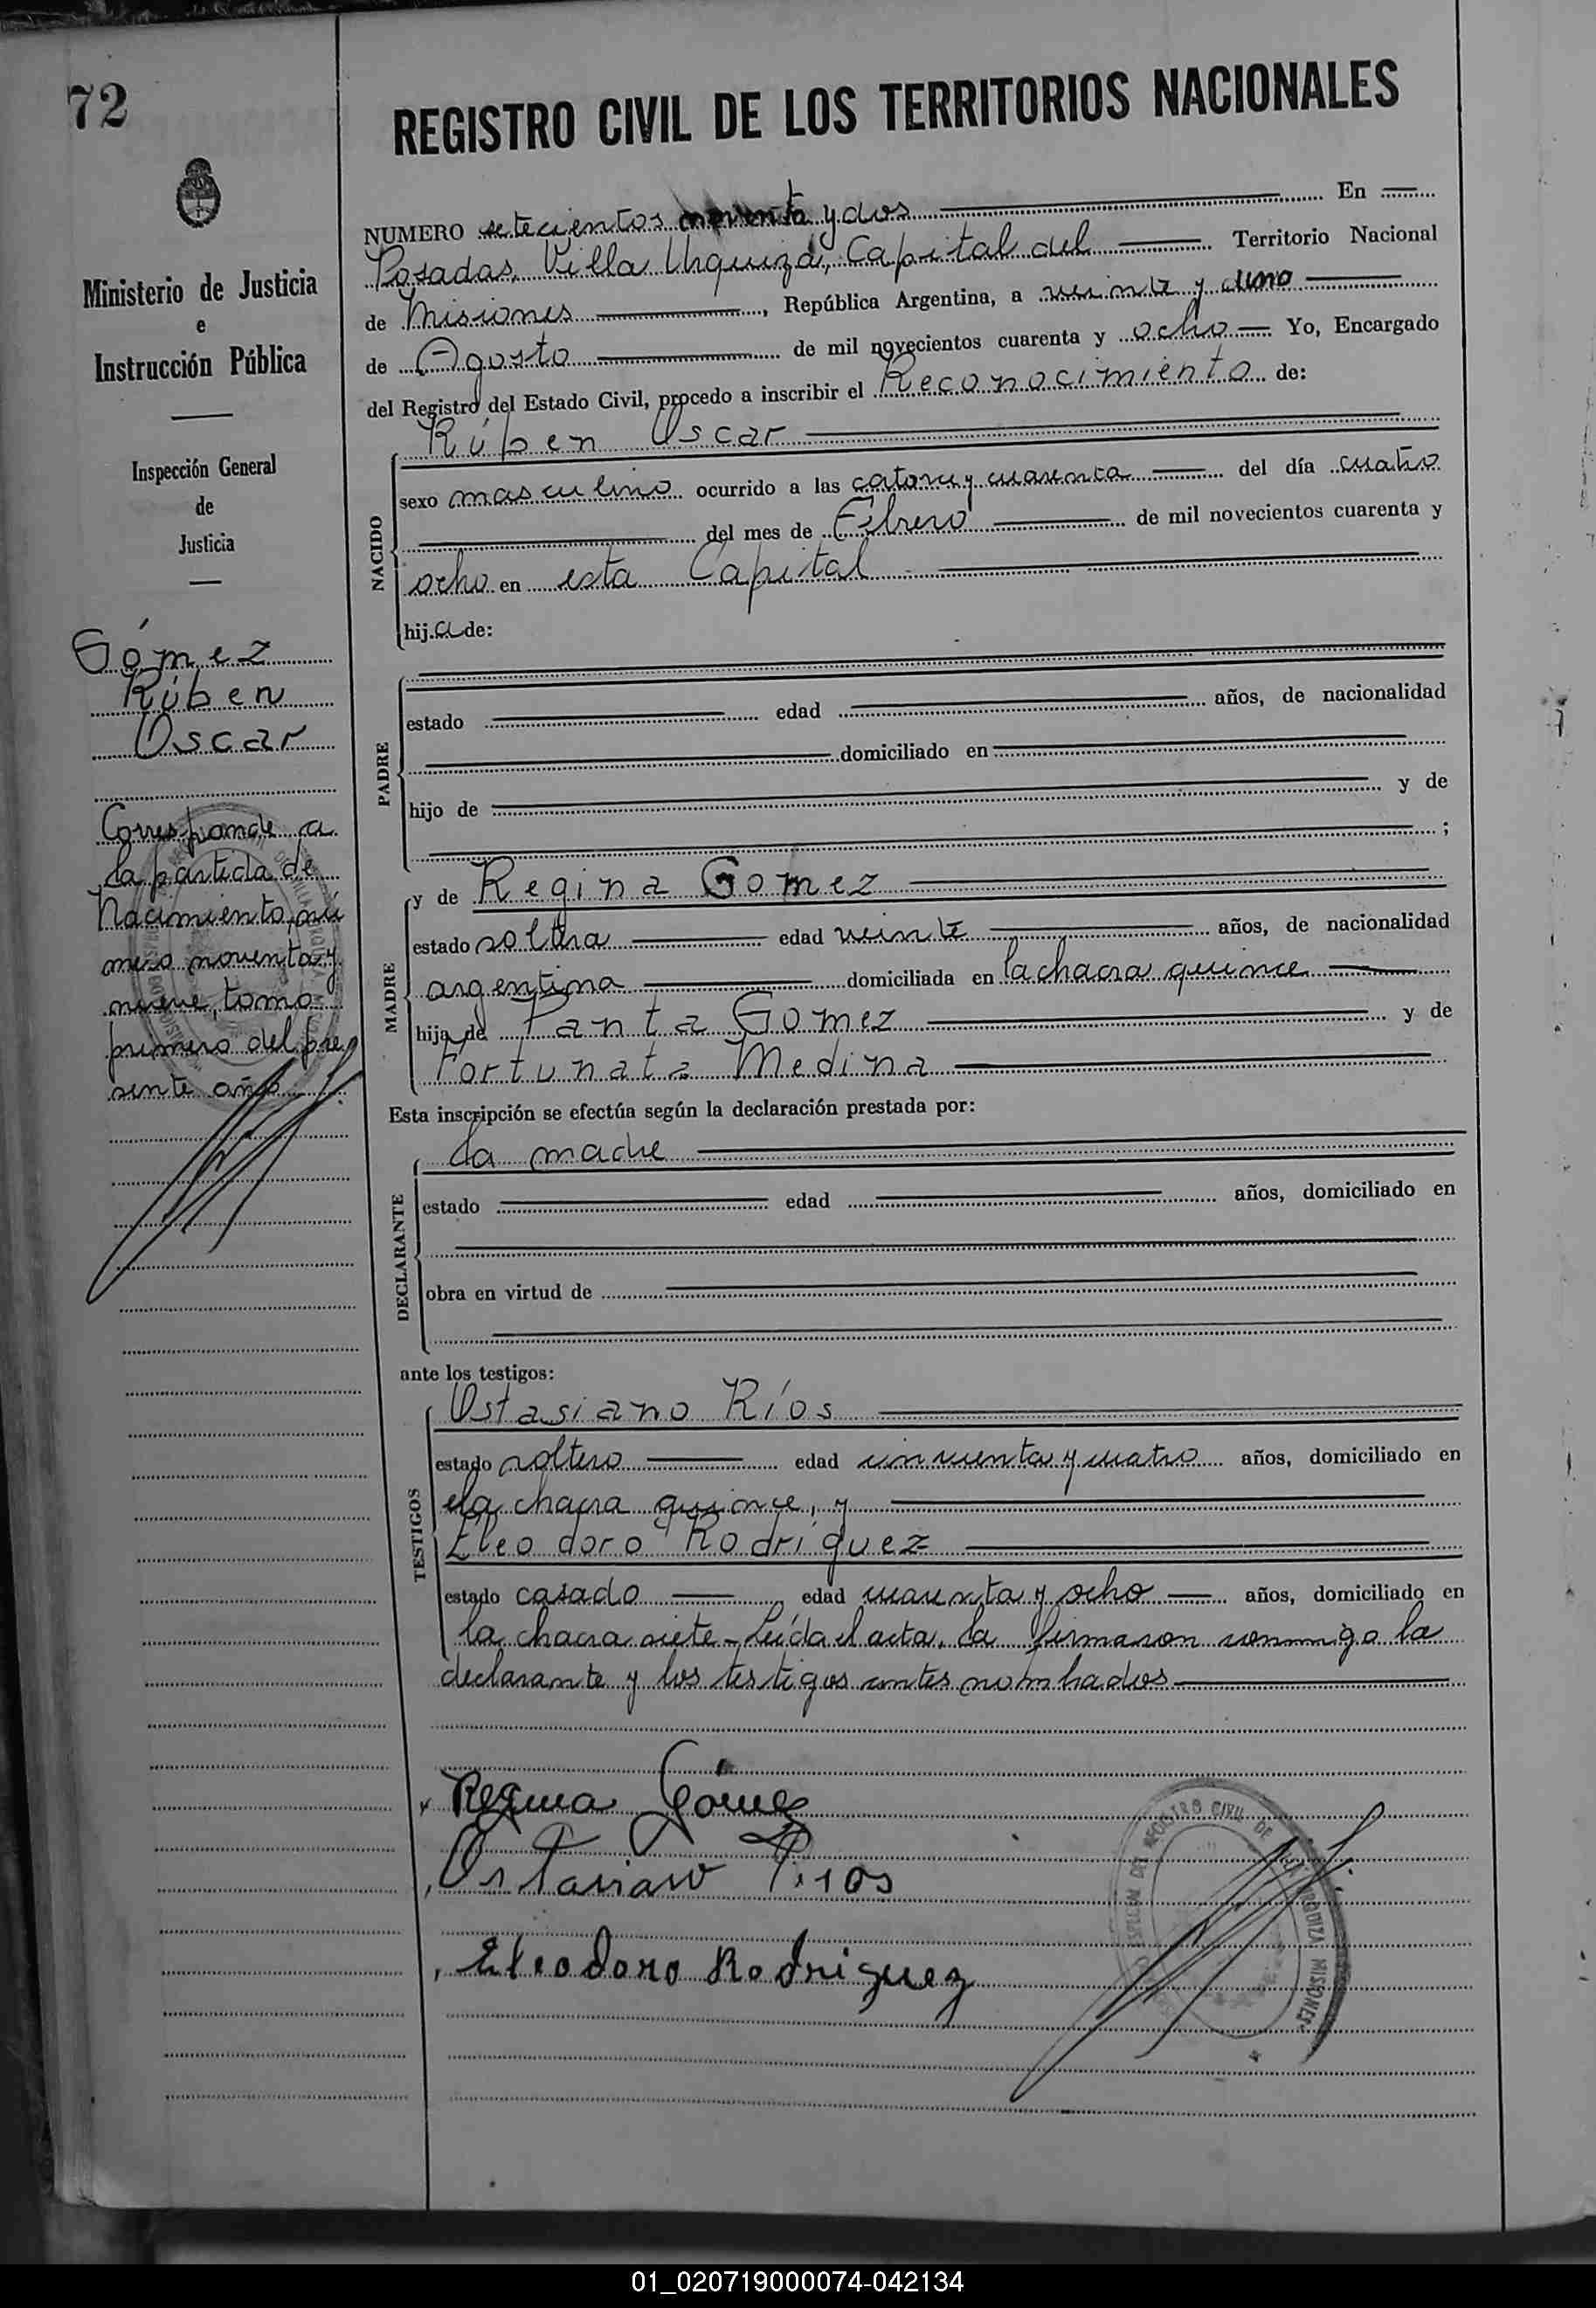 72
REGISTRO CIVIL DE LOS TERRITORIOS NACIONALES
Ministerio de Justicia
e
Instrucción Pública
Inspección General
de
Justicia
Gómez
Rúben
Oscar
Corresponde a
la partida de
Nacimiento, nú
mero noventa y
nueve, tomo
primero del pre
sente año
NUMERO setecientos noventa y dos En
Posadas, Villa Urquiza, Capital del Territorio Nacional
de Misiones, República Argentina, a veinte y uno
de Agosto de mil novecientos cuarenta y ocho Yo, Encargado
del Registro del Estado Civil, procedo a inscribir el Reconocimiento de:
Rúben Oscar
NACIDO
sexo masculino ocurrido a las catorce y cuarenta del día cuatro
del mes de Febrero de mil novecientos cuarenta y
ocho en esta Capital
hija de:
PADRE
estado edad años, de nacionalidad
domiciliado en
hijo de y de
;
MADRE
y de Regina Gomez
estado soltera edad veinte años, de nacionalidad
argentina domiciliada en la chacra quince
hija de Panta Gomez y de
Fortunata Medina
Esta inscripción se efectúa según la declaración prestada por:
DECLARANTE
La madre
estado edad años, domiciliado en
obra en virtud de
ante los testigos:
TESTIGOS
Ostasiano Ríos
estado soltero edad cincuenta y cuatro años, domiciliado en
la chacra quince, y
Eleodoro Rodríguez
estado casado edad cuarenta y ocho años, domiciliado en
la chacra siete - Leída el acta, la firmaron conmigo la
declarante y los testigos antes nombrados
Regina Gómez
Ostasiano Rios
Eleodoro Rodriguez
REGISTRO CIVIL DE
MISIONES
01_020719000074-042134